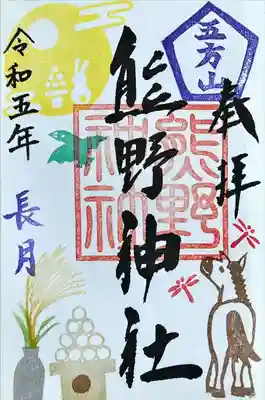 五方山
奉拝
熊野神社
熊野神社
令和五年
長月